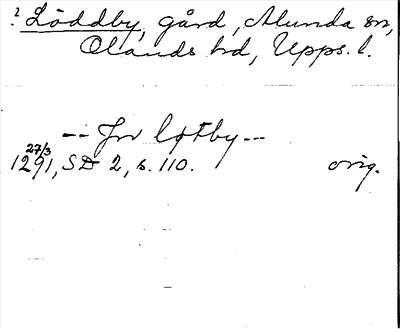 ? Löddby, gård, Alunda sn,
Olands hd, Upps. l.
-- Jn løtby --
27/3
1291, SD 2, s. 110. orig.